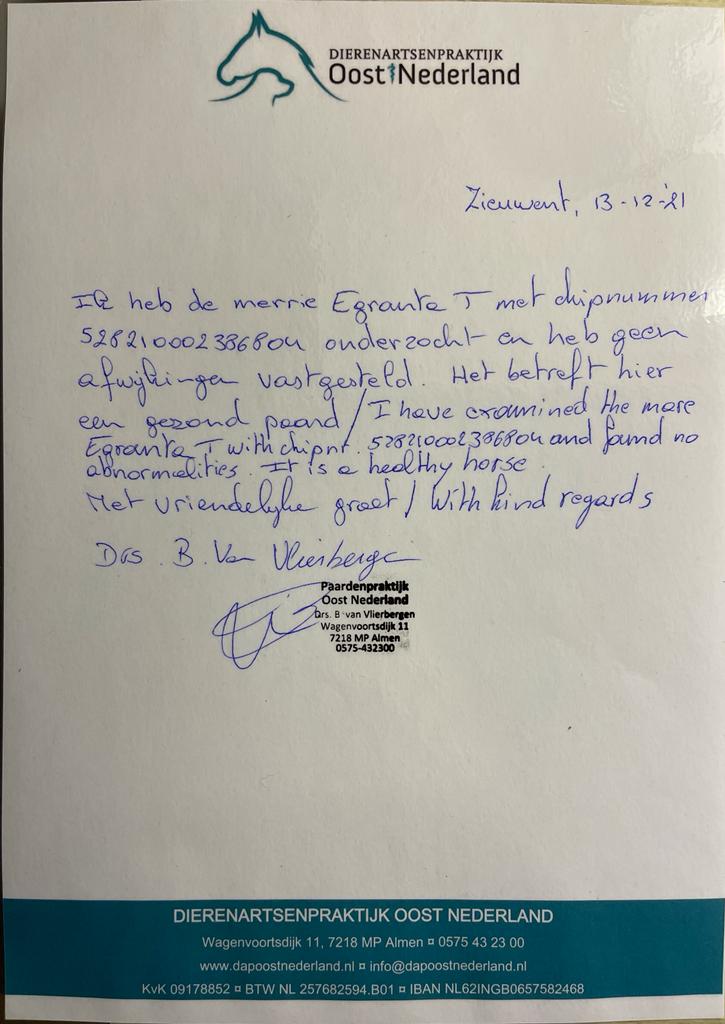 DIERENARTSENPRAKTIJK
Oost Nederland
Zieuwent, 13-12-'21
Ik heb de merrie Egranta T met chipnummer
528210002386804 onderzocht en heb geen
afwijkingen vastgesteld. Het betreft hier
een gezond paard / I have examined the mare
Egranta T with chipnr. 528210002386804 and found no
abnormalities. It is a healthy horse.
Met vriendelijke groet / With kind regards
Drs. B. Van Vlierbergen
Paardenpraktijk
Oost Nederland
Drs. B van Vlierbergen
Wagenvoortsdijk 11
7218 MP Almen
0575-432300
DIERENARTSENPRAKTIJK OOST NEDERLAND
Wagenvoortsdijk 11, 7218 MP Almen ¤ 0575 43 23 00
www.dapoostnederland.nl ¤ info@dapoostnederland.nl
KvK 09178852 ¤ BTW NL 257682594.B01 ¤ IBAN NL62INGB0657582468